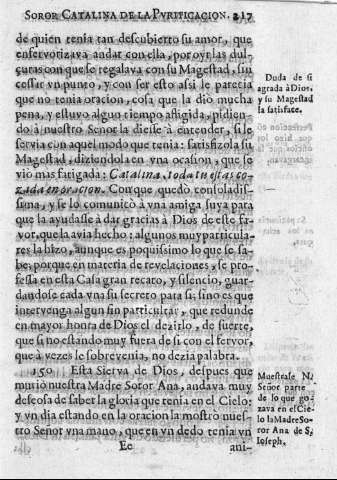 SOROR CATALINA DE LA PVRIFICACION. 217
de quien tenia tan descubierto su amor, que
enfervorizava andar con ella, por oyr las dul-
çuras con que se regalava con su Magestad, sin
cessar vn punto, y con ser esto assi le parecia
que no tenia oracion, cosa que la dio mucha
pena, y estuvo algun tiempo afligida, pidien-
do à nuestro Señor la diesse à entender, si le
servia con aquel modo que tenia: satisfizola su
Magestad, diziendola en vna ocasion, que se
viò mas fatigada: Catalina, toda tu estas co-
zada en oracion. Con que quedò consoladis-
sima, y se lo comunicò à vna amiga suya para
que la ayudasse à dar gracias à Dios de este fa-
vor, que la avia hecho: algunos muy particula-
res la hizo, aunque es poquissimo lo que se sa-
be, porque en materia de revelaciones, se pro-
fessa en esta Casa gran recato, y silencio, guar-
dandose cada vna su secreto para si; sino es que
intervenga algun fin particular, que redunde
en mayor honra de Dios el dezirlo, de suerte,
que si no estando muy fuera de si con el fervor,
que à vezes le sobrevenia, no dezia palabra.
150 Esta Sierva de Dios, despues que
murió nuestra Madre Soror Ana, andava muy
deseosa de saber la gloria que tenia en el Cielo:
y vn dia estando en la oracion la mostrò nues-
tro Señor vna mano, que en vn dedo tenia vn
Ee ani-
Duda de si
agrada à Dios,
y su Magestad
la satisface.
Muestrase N.
Señor parte
de lo que go-
zava en el Cie-
lo la Madre So-
ror Ana de S.
Ioseph.